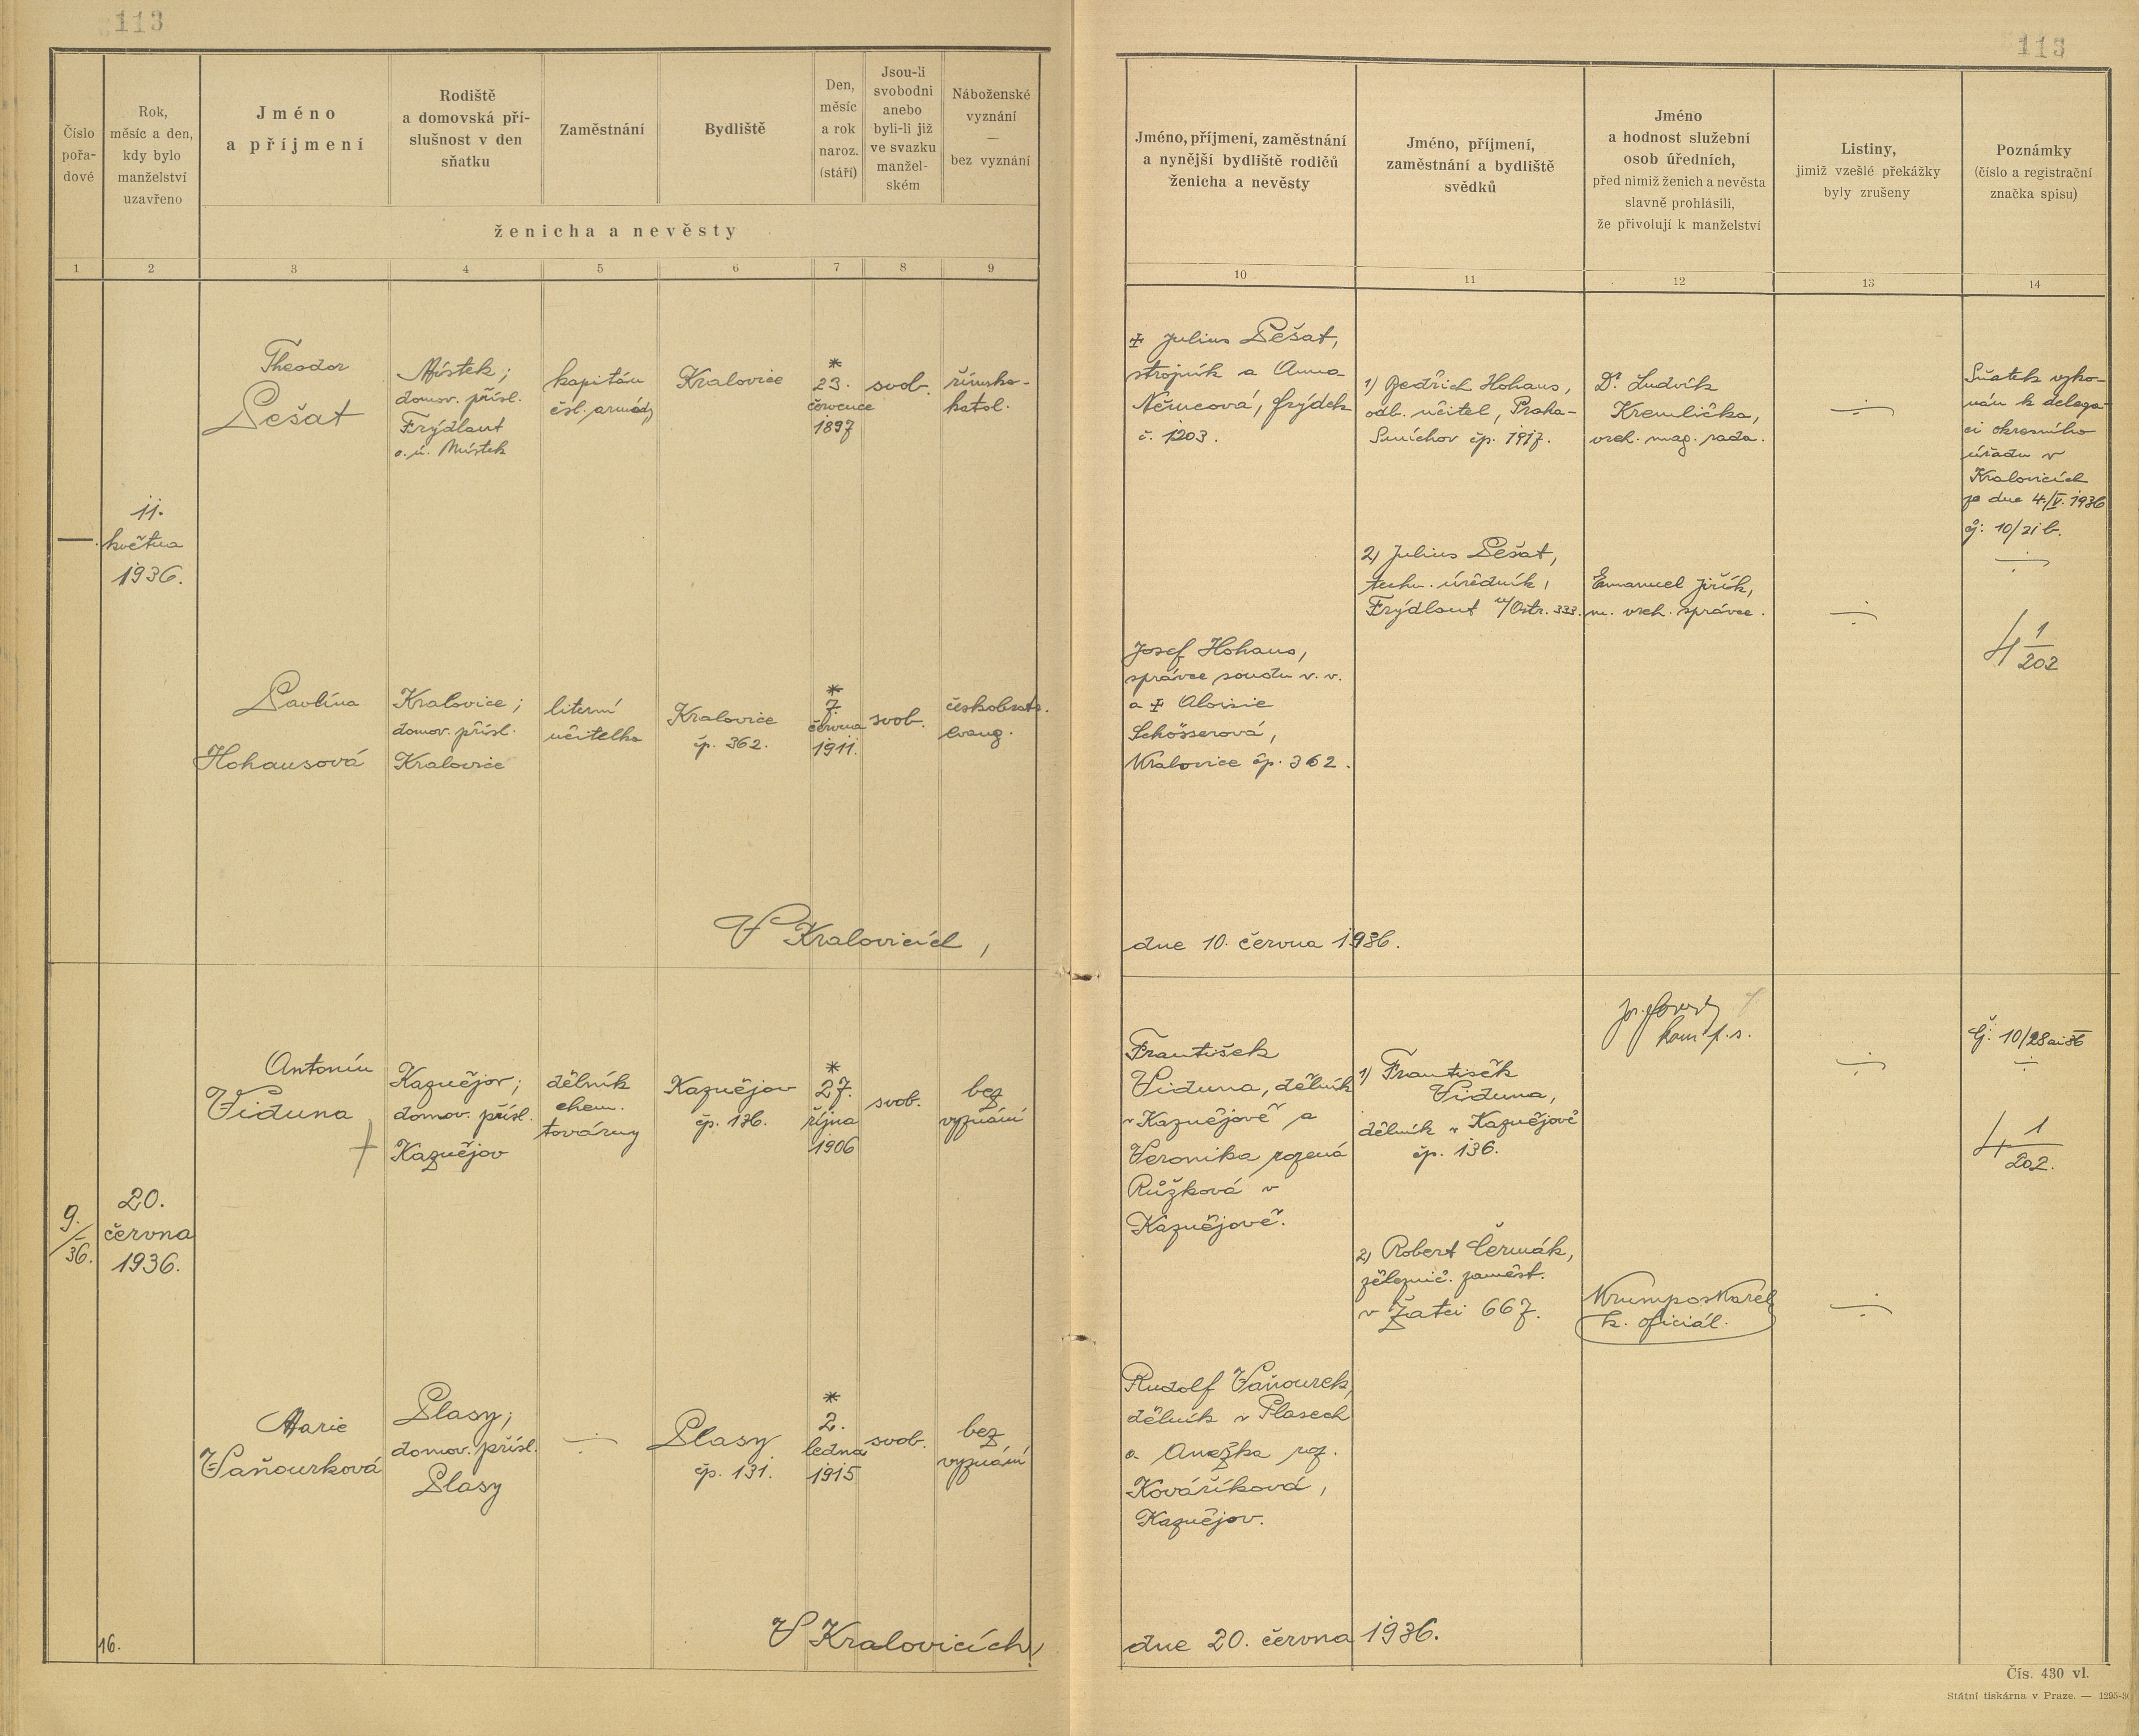 113
113
Číslo
pořa-
dové
Rok,
měsíc a den,
kdy bylo
manželství
uzavřeno
Jméno
a příjmení
Rodiště
a domovská pří-
slušnost v den
sňatku
Zaměstnání
Bydliště
Den,
měsíc
a rok
naroz.
(stáří)
Jsou-li
svobodni
anebo
byli-li již
ve svazku
manžel-
ském
Náboženské
vyznání
—
bez vyznání
ženicha a nevěsty
Jméno, příjmení, zaměstnání
a nynější bydliště rodičů
ženicha a nevěsty
Jméno, příjmení,
zaměstnání a bydliště
svědků
Jméno
a hodnost služební
osob úředních,
před nimiž ženich a nevěsta
slavně prohlásili,
že přivolují k manželství
Listiny,
jimiž vzešlé překážky
byly zrušeny
Poznámky
(číslo a registrační
značka spisu)
1 2 3 4 5 6 7 8 9 10 11 12 13 14
—.
11.
května
1936.
Theodor
Pešat
Místek;
domov. přísl.
Frýdlant
o. ú. Místek
kapitán
čsl. armády
Kralovice
*
23.
července
1897
svob.
římsko-
katol.
✠ Julius Pešat,
strojník a Anna
Němcová, Frýdek
č. 1203.
1) Bedřich Hohaus,
odb. učitel, Praha-
Smíchov čp. 1917.
Dr. Ludvík
Kremlička,
vrch. mag. rada.
÷
Sňatek vyko-
nán k delega-
ci okresního
úřadu v
Kralovicích
ze dne 4./V. 1936
čj: 10/21 b.
÷
2) Julius Pešat,
techn. úředník,
Frýdlant n/Ostr. 333.
Emanuel Jiřík,
m. vrch. správce.
÷
4 1/202
Pavlína
Hohausová
Kralovice;
domov. přísl.
Kralovice
literní
učitelka
Kralovice
čp. 362.
*
7.
června
1911.
svob.
českobratr.
evang.
Josef Hohaus,
správce soudu v. v.
a ✠ Aloisie
Schösserová,
Kralovice čp. 362.
V Kralovicích,
dne 10. června 1936.
9./36.
20.
června
1936.
Antonín
Viduna
†
Kaznějov;
domov. přísl.
Kaznějov
dělník
chem.
továrny
Kaznějov
čp. 136.
*
27.
října
1906
svob.
bez
vyznání
František
Viduna, dělník
v Kaznějově a
Veronika rozená
Růžková v
Kaznějově.
1) František
Viduna,
dělník v Kaznějově
čp. 136.
kom. p. s.
÷
Čj: 10/28ai36
÷
4 1/202.
2) Robert Čermák,
železnič. zaměst.
v Žatci 667.
Krumpos Karel
k. oficiál.
÷
Marie
Vaňourková
Plasy;
domov. přísl.
Plasy
÷
Plasy
čp. 131.
*
2.
ledna
1915
svob.
bez
vyznání
Rudolf Vaňourek,
dělník v Plasech
a Anežka roz.
Kováříková,
Kaznějov.
16.
V Kralovicích,
dne 20. června 1936.
Čís. 430 vl.
Státní tiskárna v Praze. — 1295-3